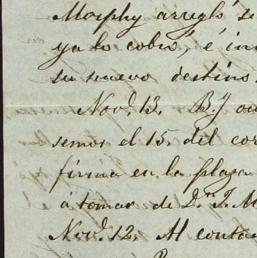 Morphy arregló se
ya lo cobró, é in
su nuevo destino.
Nov. 13. B. J
semos el 15. del cor
firma en la plaza
á tomar de D. J. M
Nov. 12. Al conta